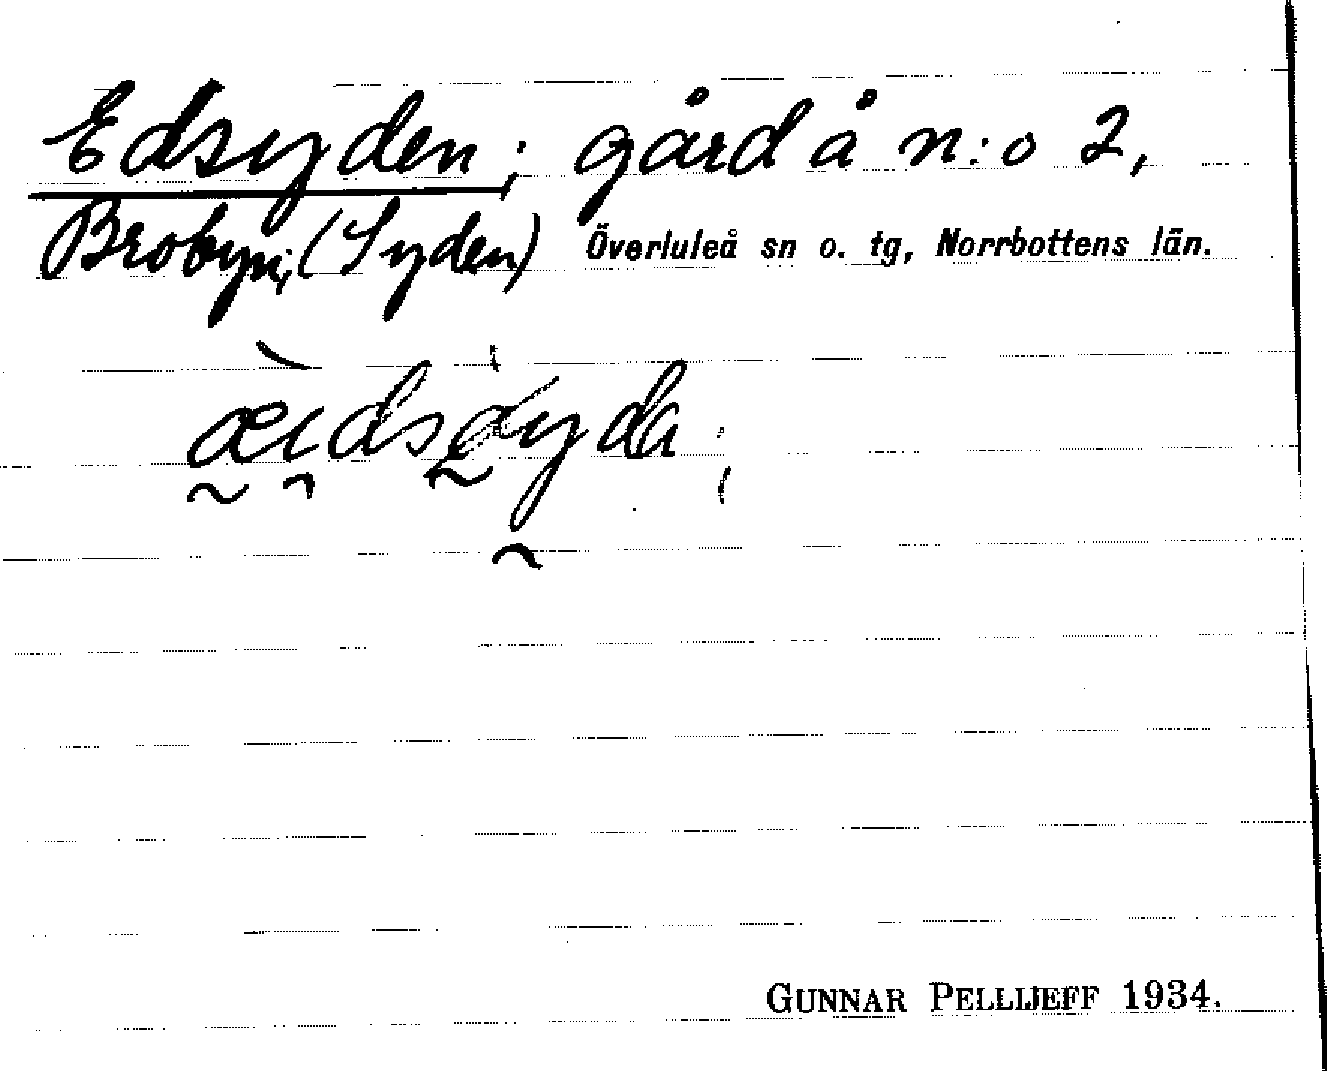 Edsyden; gård å n:o 2,
Brobyn; (Syden) Överluleå sn o. tg, Norrbottens län.
GUNNAR PELLIJEFF 1934.